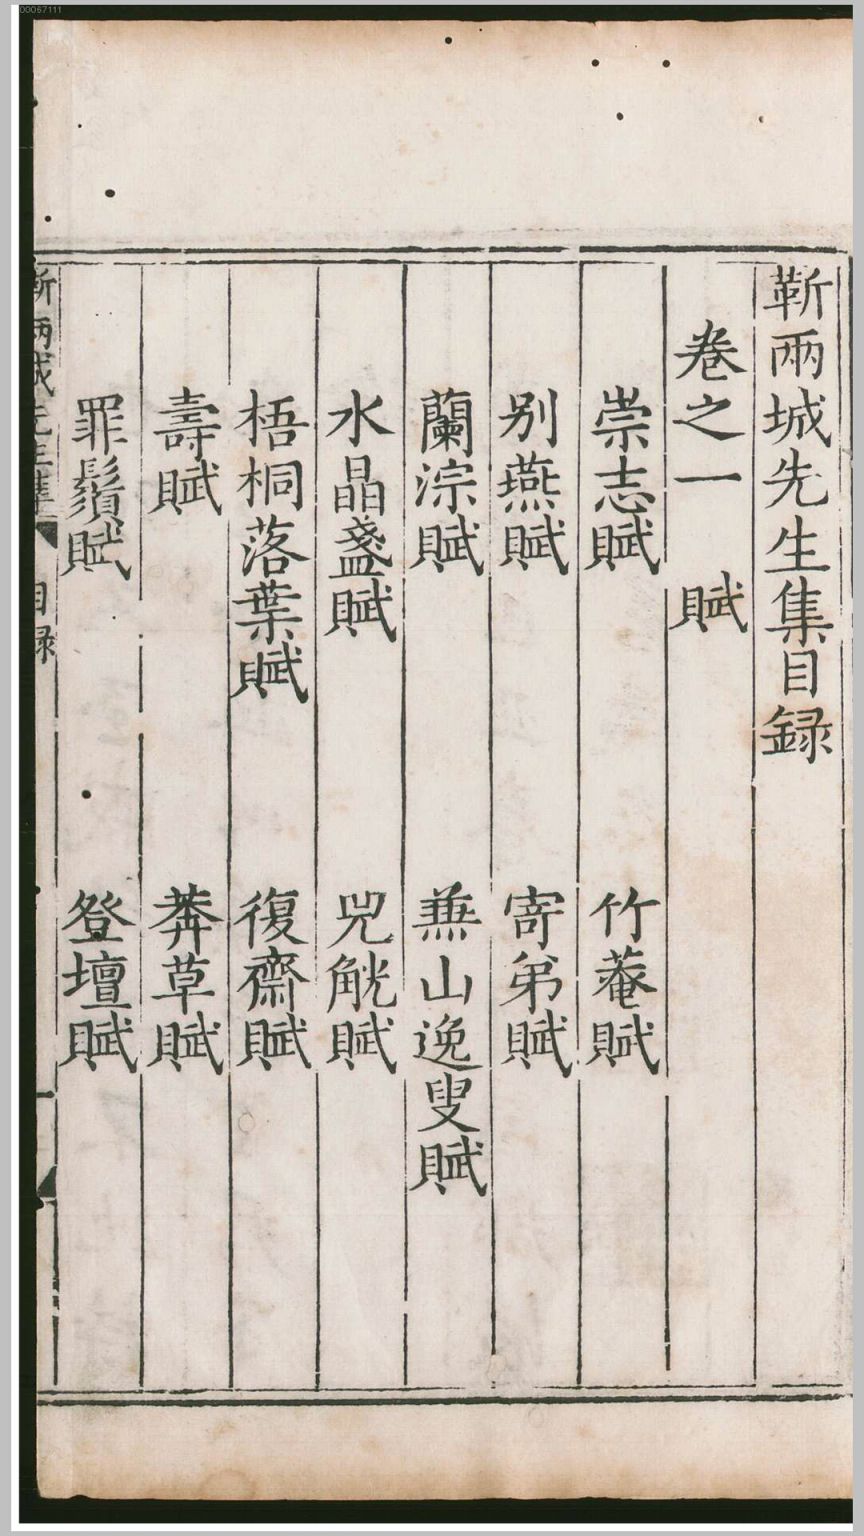 靳兩城先生集目録
卷之一　賦
崇志賦　竹菴賦
别燕賦　寄弟賦
蘭淙賦　燕山逸叟賦
水晶盞賦　兕觥賦
梧桐落葉賦　復齋賦
壽賦　莽草賦
罪鬚賦　登壇賦
靳兩城先生集　目録
00067111